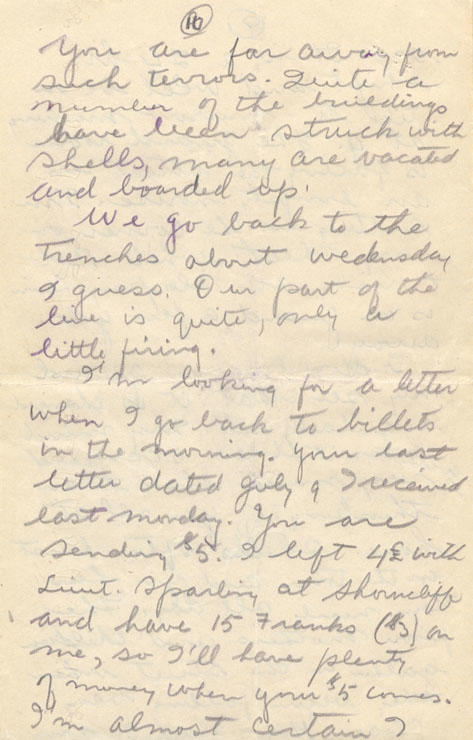 You are far away from
such terrors. Quite a
number of the buildings
have been struck with
shells, many are vacated
and boarded up.
We go back to the
trenches about wedensday
I guess. Our part of the
line is quite, only a
little firing.
I'm looking for a letter
when I go back to billets
in the morning. Your last
letter dated July 9 I received
last monday. You are
sending $5. I left 4£ with
Lieut. Sparling at Shorncliff
and have 15 Franks ($3) on
me, so I'll have plenty
of money when your $5 comes.
I'm almost certain I